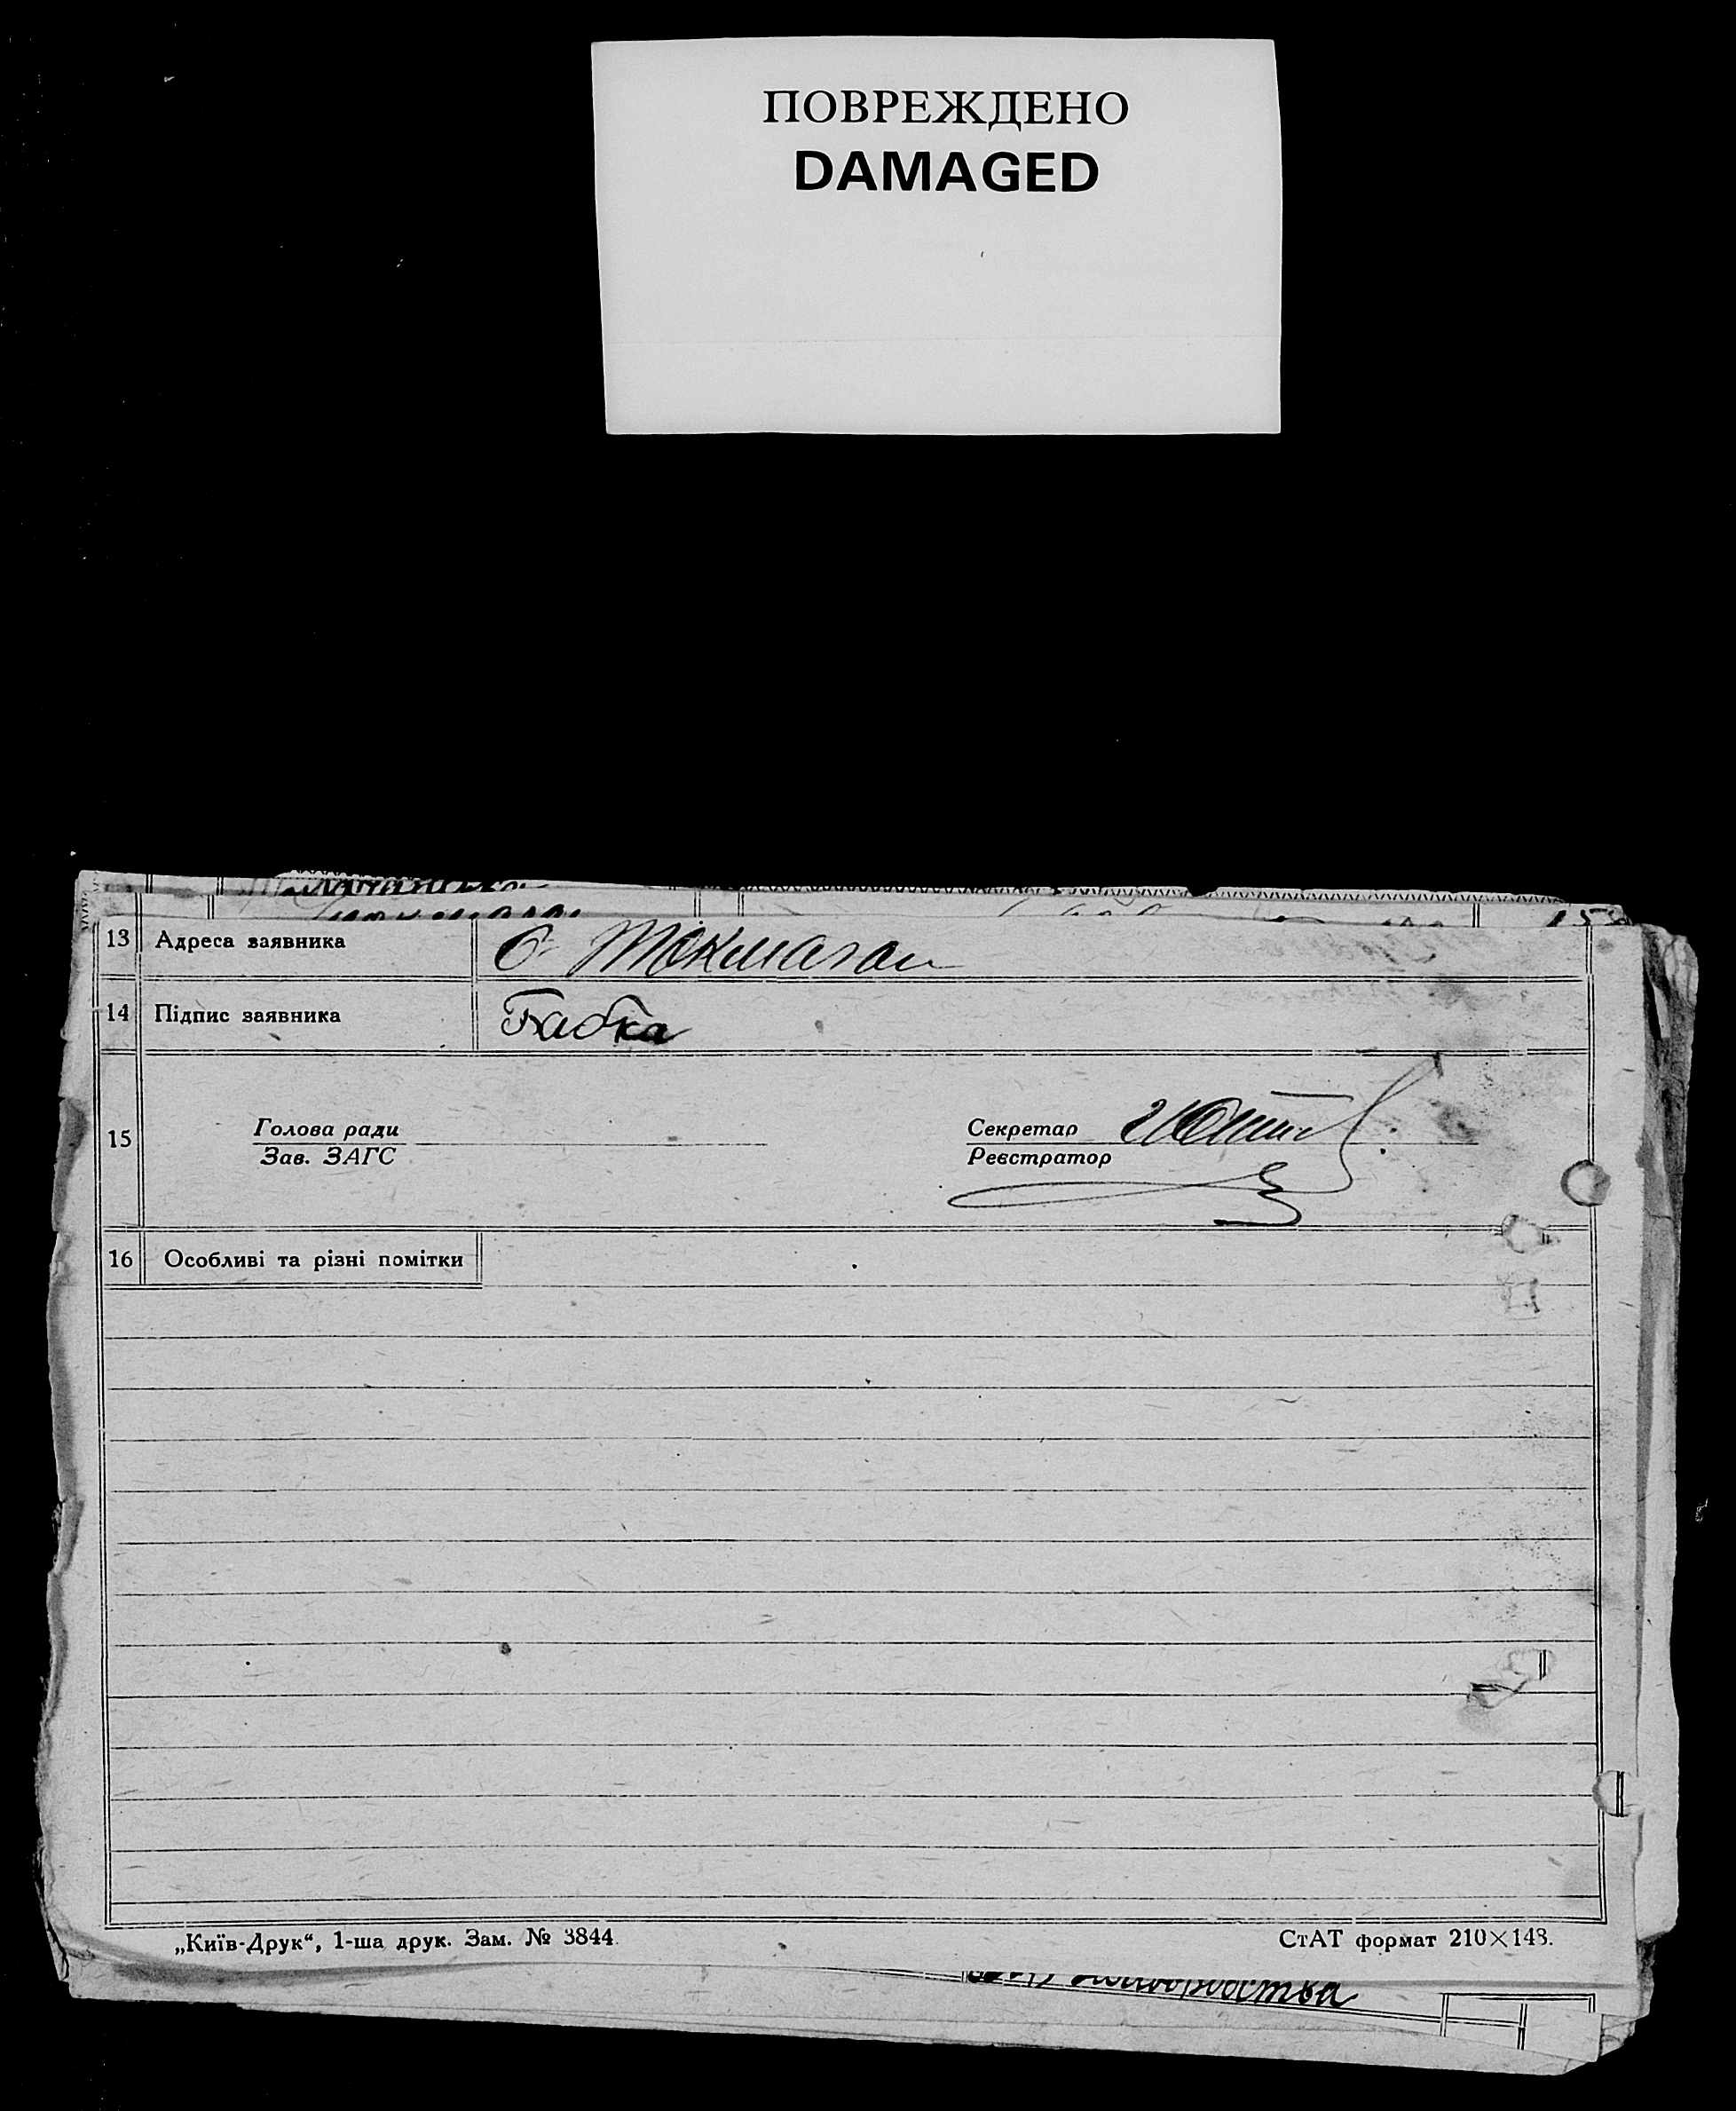 ПОВРЕЖДЕНО
DAMAGED
13 Адреса заявника С. Токмаган
14 Підпис заявника Бабка
15 Голова ради Секретар
Зав. ЗАГС Реєстратор
16 Особливі та різні помітки
„Київ-Друк“, 1-ша друк. Зам. № 3844. СтАТ формат 210×148.